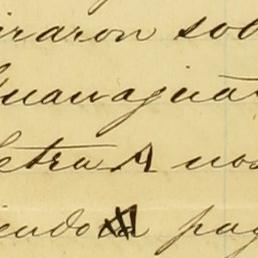 iraron sob
uanaguat
letra A nos
iendo pag